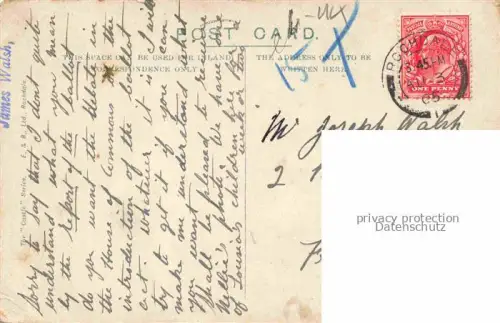 POST CARD.
THIS SPACE CAN BE USED FOR INLAND
CORRESPONDENCE ONLY
THE ADDRESS ONLY TO BE
WRITTEN HERE.
James Walsh,
Sorry to say that I don't quite
understand what you mean
by the report of the last
do you want the debate in
the House of Commons on the
introduction of the
act. whatever it is I will
try to get it if you can
make me understand what
you want.
Shall be pleased to receive
Nellie's photo. We have
of Louisa's children here for a
week or
Mr Joseph Walsh
2
15 X
ONE PENNY
45 AM
05
privacy protection